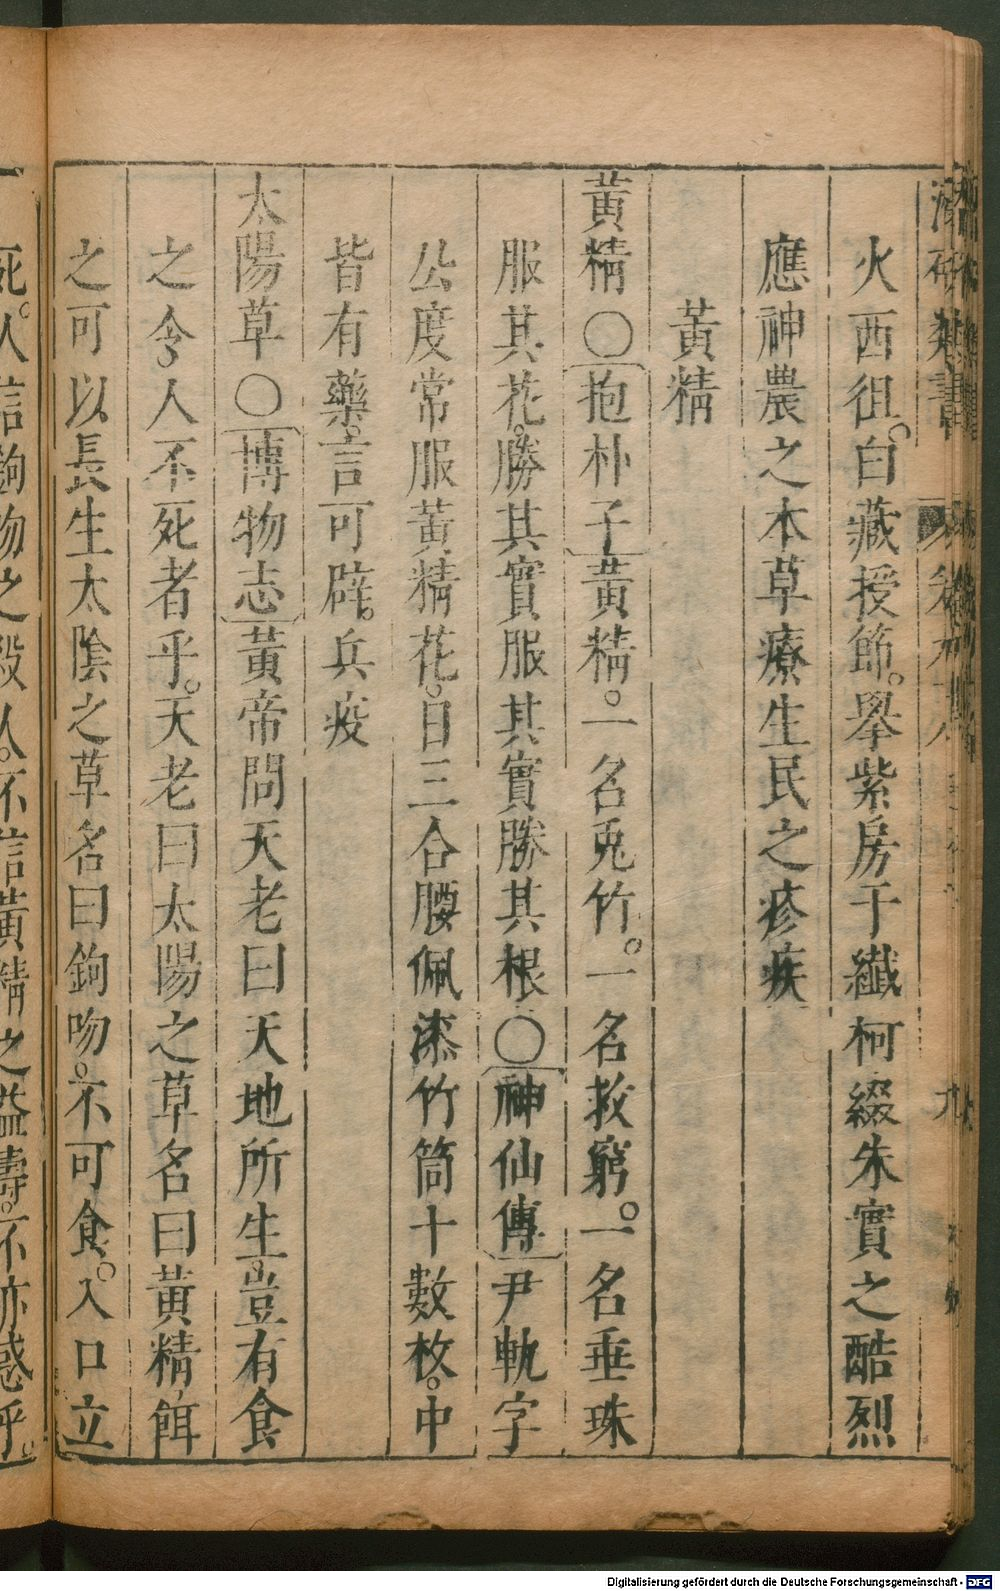 火西徂白藏授節舉紫房于纖柯綴朱實之酷烈
應神農之本草療生民之疹疾
黃精
黃精〇抱朴子黃精一名兎竹一名救窮一名垂珠
服其花勝其實服其實勝其根〇神仙傳尹軌字
公度常服黃精花日三合腰佩漆竹筒十數枚中
皆有藥言可辟兵疫
太陽草〇博物志黃帝問天老曰天地所生豈有食
之令人不死者乎天老曰太陽之草名曰黃精餌
之可以長生太陰之草名曰鉤吻不可食入口立
死人信鉤吻之殺人不信黃精之益壽不亦惑乎
Digitalisierung gefördert durch die Deutsche Forschungsgemeinschaft - DFG